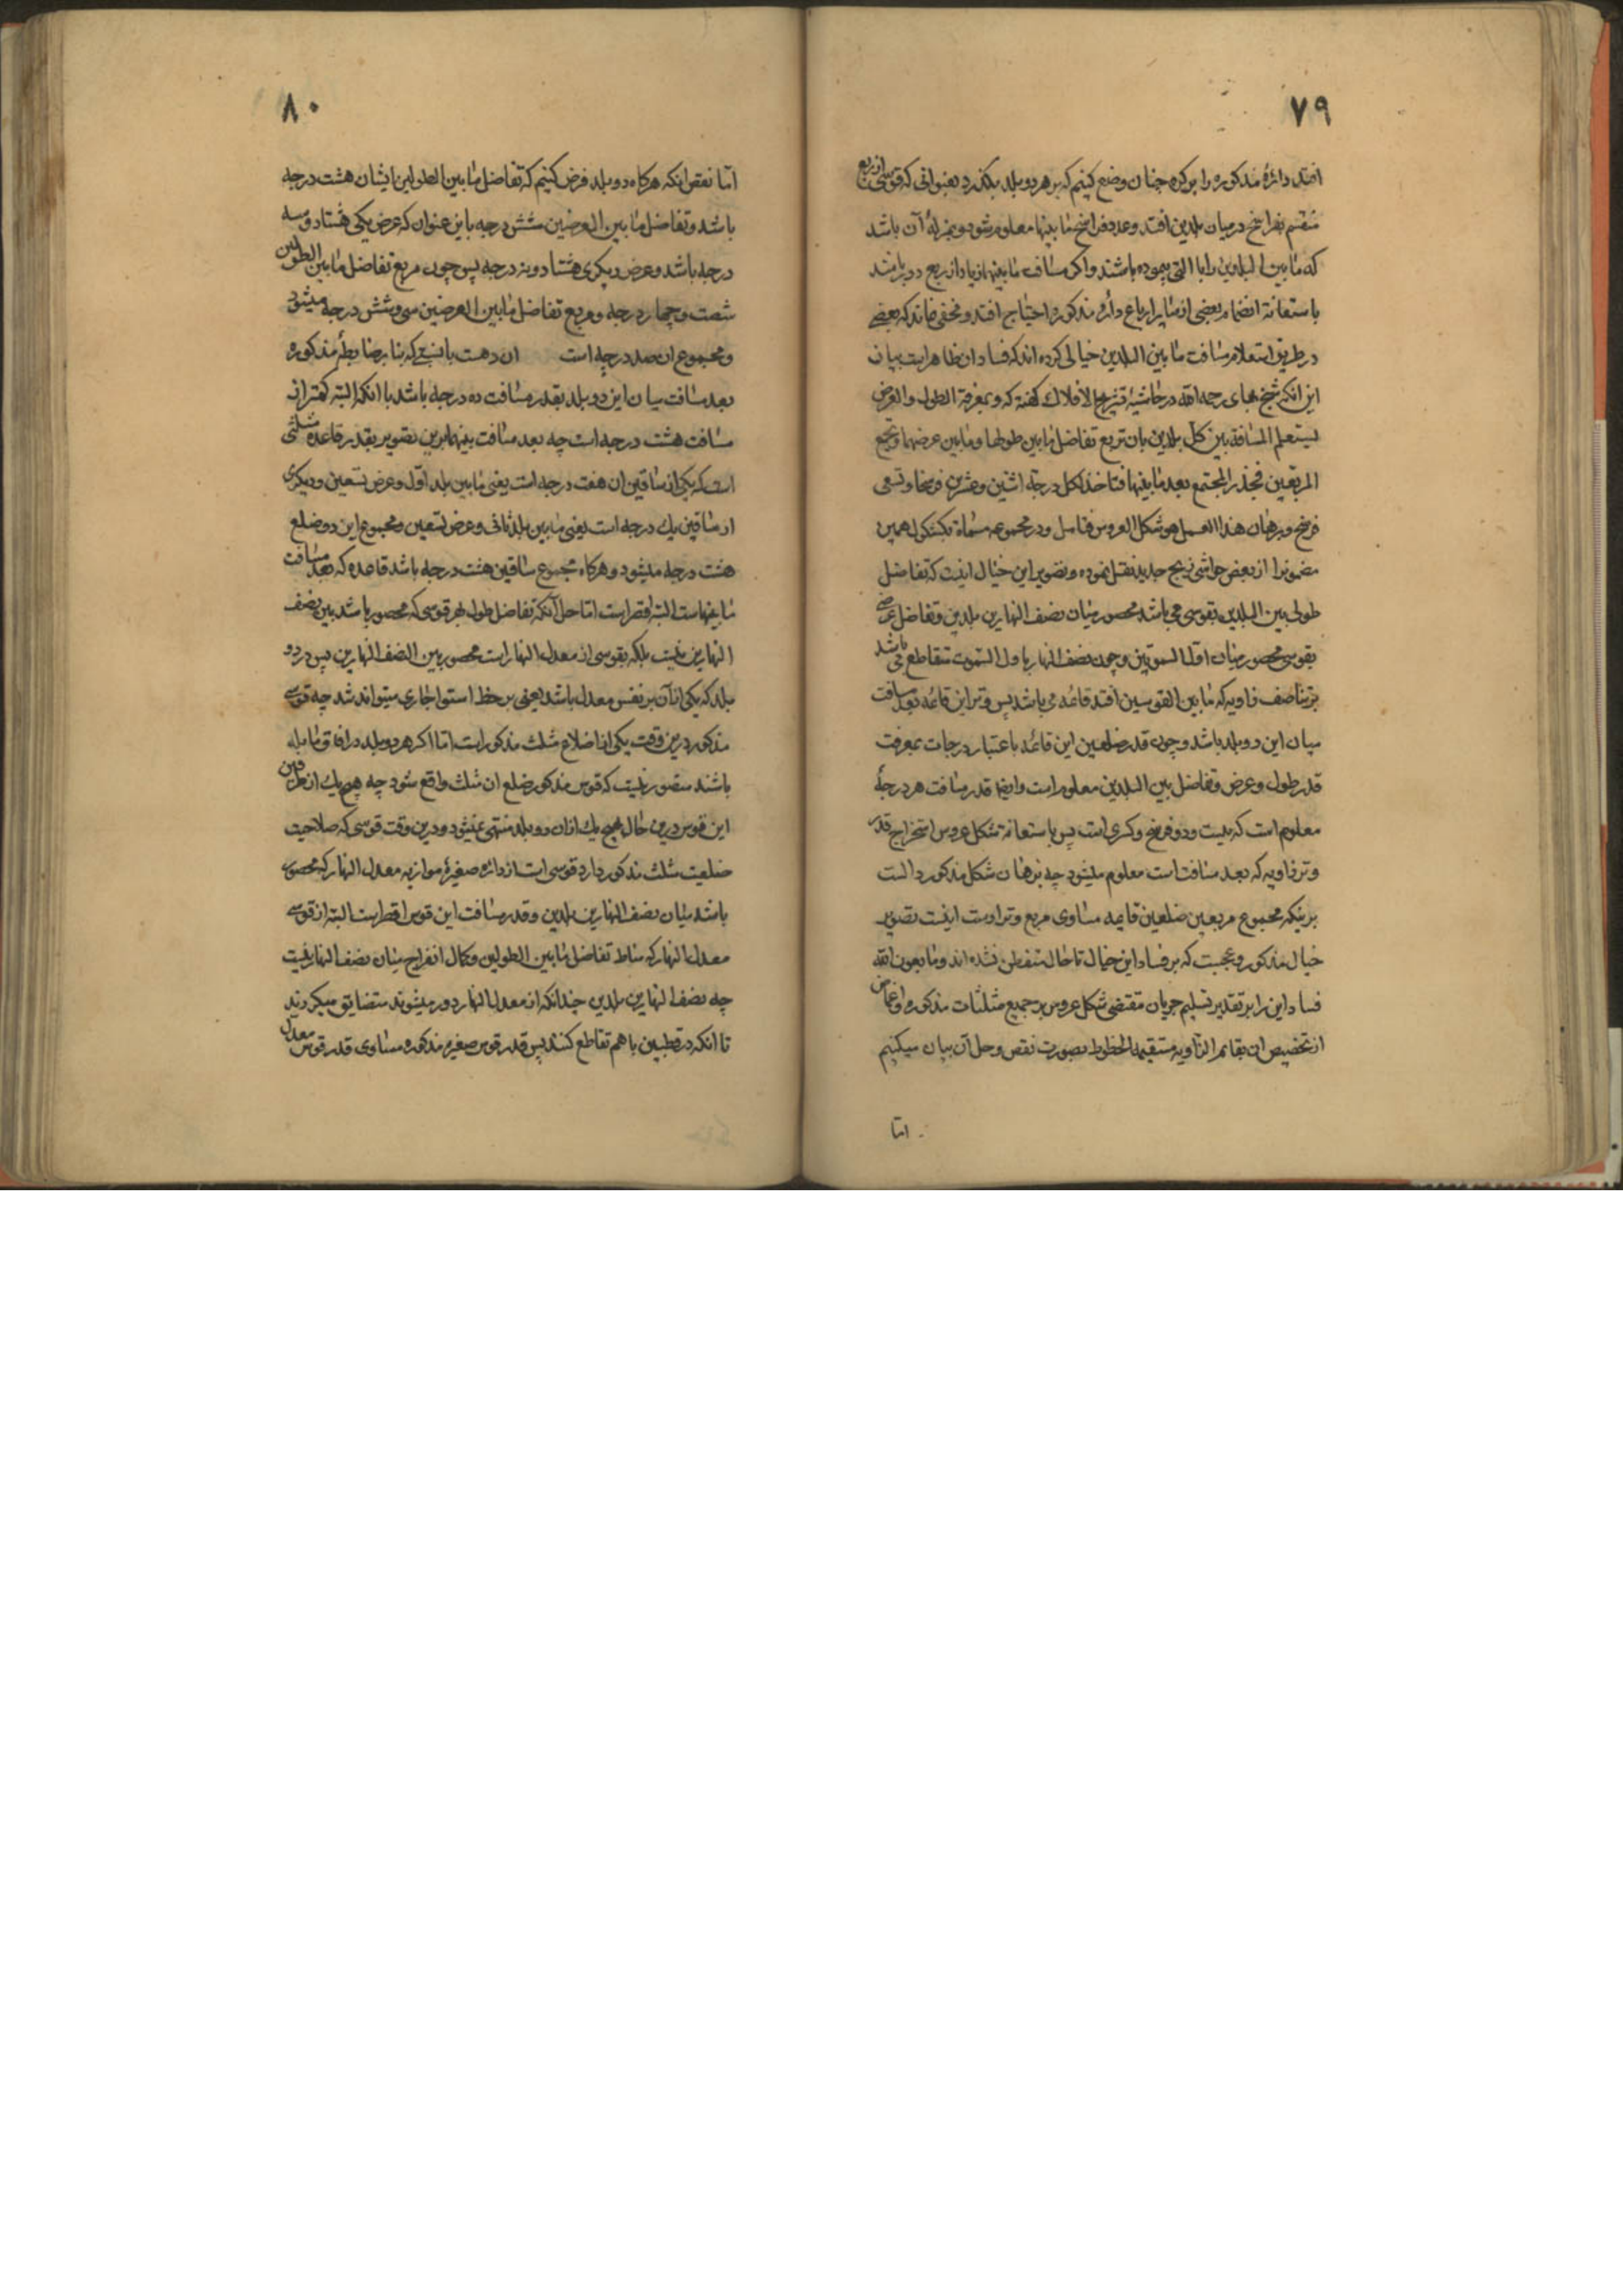 ٧٩
افتد دائرهٔ مذکوره را بر کره چنان وضع کنیم که بر هر دو بلد بکذرد بعنوانی که قوسی از ربع
منقسم بفراسخ در میان بلدین افتد وعدد فراسخ مابینهما معلوم شود وبمنزلهٔ آن باشد
که مابین البلدین را با التی پیموده باشند واکر مسافت مابینهما زیاد از ربع دور باشد
باستعانة انضمام بعضی از سایر ارباع دائره مذکوره احتیاج افتد ومخفی نماند که بعضی
در طریق استعلام مسافت مابین البلدین خیالی کرده اند که فساد آن ظاهر است بیان
این آنکه شیخ بهای رحمه الله در حاشیهٔ تشریح الافلاک کفته که وبمعرفة الطول والعرض
یستعلم المسافة بین کل بلدین بان تربع تفاضل مابین طولها ومابین عرضهما وتجمع
المربعین فجذر المجتمع بعد مابینهما فتاخذ لکل درجة اثنین وعشرین فرسخا وتسعی
فرسخ وبرهان هذا العمل هو شکل العروس فتامل ودر مجموعه مسماة بکشکول همین
مضمونرا از بعض حواشی زیج جدید نقل نموده وتصویر این خیال اینست که تفاضل
طولی بین البلدین بقوسی می باشد محصور میان نصف النهارین بلدین وتفاضل عرضی
بقوسی محصور میان اول السموتین وچون نصف النهار با اول السموت متقاطع می باشد
بر تناصف زاویه که مابین القوسین افتد قائمه می باشد پس وتر این قائمه بعد مسافت
میان این دو بلد باشد وچون قدر ضلعین این قائمه باعتبار درجات بمعرفت
قدر طول وعرض وتفاضل بین البلدین معلوم است وایضا قدر مسافت هر درجهٔ
معلوم است که بیست ودو فرسخ وکسری است پس باستعانة شکل عروس استخراج قدر
وتر زاویه که بعد مسافت است معلوم میشود چه برهان شکل مذکور دالست
بر اینکه مجموع مربعین ضلعین قایمه مساوی مربع وتر اوست اینست تصویر
خیال مذکور وعجبست که بر فساد این خیال تا حال متفطن نشده اند وما بعون الله
فساد این را بر تقدیر تسلیم جریان مقتضی شکل عروس بر جمیع مثلثات مذکوره واغماض
از تخصیص ان بقائم الزاویه مستقیمه الخطوط بصورت نقض وحل آن بیان میکنیم
اما
٨٠
اما نقض انکه هرکاه دو بلد فرض کنیم که تفاضل مابین الطولین ایشان هشت درجه
باشد وتفاضل مابین العرضین شش درجه باین عنوان که عرض یکی هشتاد وسه
درجه باشد وعرض دیکری هشتاد ونه درجه پس چون مربع تفاضل مابین الطولین
شصت وچهار درجه ومربع تفاضل مابین العرضین سی وشش درجه میشود
ومجموع ان صد درجه است ان دهست بایستی که بنا بر ضابطهٔ مذکوره
بعد مسافت میان این دو بلد بقدر مسافت ده درجه باشد با آنکه البته کمتر از
مسافت هشت درجه است چه بعد مسافت بینهما برین تصویر بقدر قاعده مثلثی
است که یکی از ساقین ان هفت درجه است یعنی مابین بلد اول وعرض تسعین ودیکری
از ساقین یک درجه است یعنی مابین بلد ثانی وعرض تسعین ومجموع این دو ضلع
هشت درجه میشود وهرکاه مجموع ساقین هشت درجه باشد قاعده که بعد مسافت
مابینهماست البته اقصر است اما حل آنکه تفاضل طول بهر قوسی که محصور باشد بین نصف
النهارین نیست بلکه بقوسی از معدل النهار است محصور بین النصف النهارین پس در دو
بلد که یکی از آن بر نفس معدل باشد یعنی بر خط استوا جاری میتواند شد چه قوس
مذکور درین وقت یکی از اضلاع مثلث مذکور است اما اکر هر دو بلد در افاق مایله
باشند متصور نیست که قوس مذکور ضلع ان مثلث واقع شود چه هیچ یک از طرفین
این قوس درین حال بهیچ یک از ان دو بلد منتهی نمیشود ودرین وقت قوسی که صلاحیت
ضلعیت مثلث مذکور دارد قوسی است از دائره صغیرهٔ موازیه معدل النهار که محصور
باشد میان نصف النهارین بلدین وقدر مسافت این قوس اقصر است البته از قوس
معدل النهار که مناط تفاضل مابین الطولین وکمال انفراج میان نصف النهار نیست
چه نصف النهارین بلدین چندانکه از معدل النهار دور میشوند متضایق میکردند
تا آنکه در قطبین با هم تقاطع کنند پس قدر قوس صغیره مذکوره مساوی قدر قوس معدل